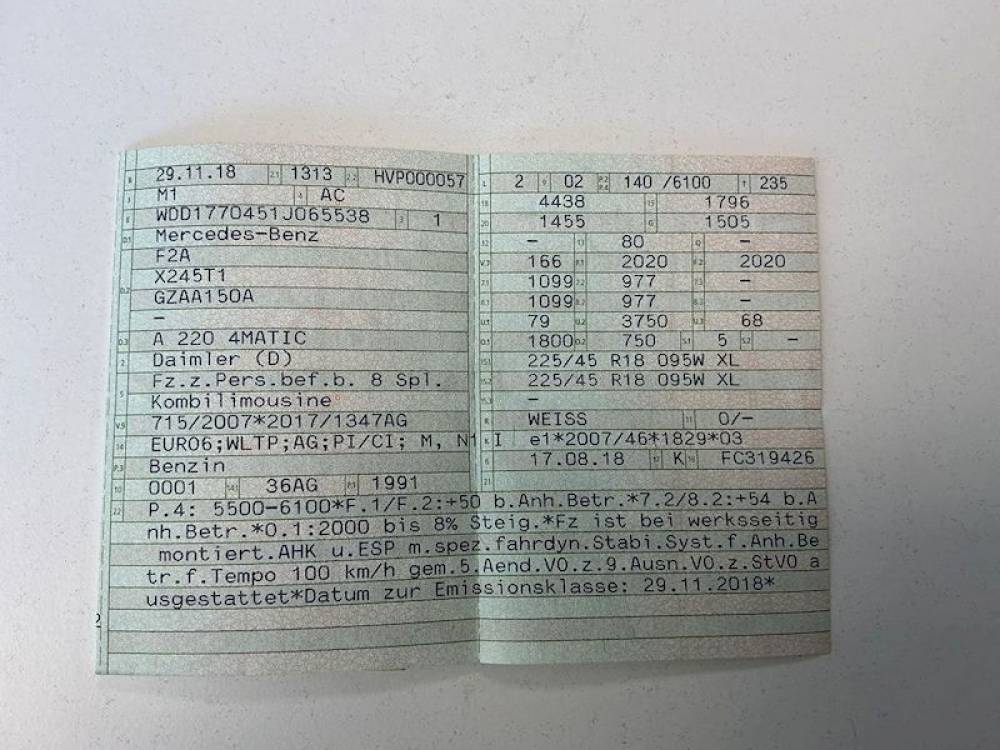 29.11.18 2.1 1313 2.2 HVP000057
M1 4 AC
WDD1770451J065538 3 1
Mercedes-Benz
F2A
X245T1
GZAA150A
–
A 220 4MATIC
Daimler (D)
Fz.z.Pers.bef.b. 8 Spl.
Kombilimousine
715/2007*2017/1347AG
EURO6;WLTP;AG;PI/CI; M, N1 I
Benzin
0001 14.1 36AG P.1 1991
L 2 9 02 P.2 P.4 140 /6100 T 235
18 4438 19 1796
20 1455 G 1505
12 – 13 80 Q –
V.7 166 F.1 2020 F.2 2020
7.1 1099 7.2 977 7.3 –
8.1 1099 8.2 977 8.3 –
U.1 79 U.2 3750 U.3 68
O.1 1800 O.2 750 S.1 5 S.2 –
15.1 225/45 R18 095W XL
15.2 225/45 R18 095W XL
15.3 –
R WEISS 11 0/–
K e1*2007/46*1829*03
6 17.08.18 17 K 16 FC319426
21
22 P.4: 5500-6100*F.1/F.2:+50 b.Anh.Betr.*7.2/8.2:+54 b.A
nh.Betr.*O.1:2000 bis 8% Steig.*Fz ist bei werksseitig
montiert.AHK u.ESP m.spez.fahrdyn.Stabi.Syst.f.Anh.Be
tr.f.Tempo 100 km/h gem.5.Aend.VO.z.9.Ausn.VO.z.StVO a
usgestattet*Datum zur Emissionsklasse: 29.11.2018*